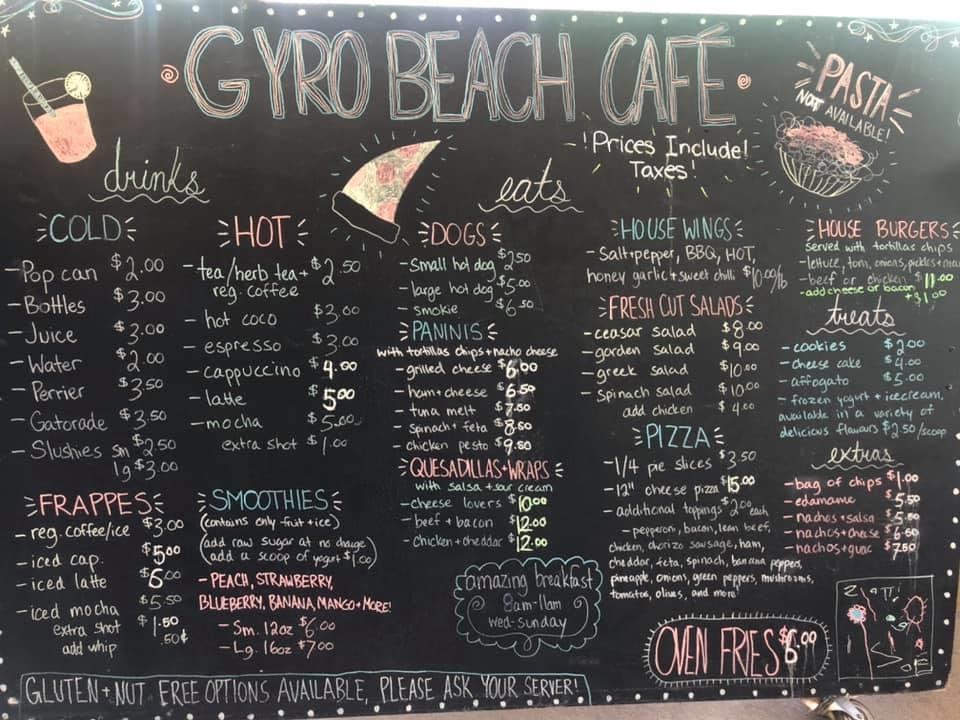 GYRO BEACH CAFÉ
PASTA
NOT AVAILABLE!
!Prices Include!
Taxes!
drinks
eats
COLD
- Pop can $2.00
- Bottles $3.00
- Juice $3.00
- Water $2.00
- Perrier $3.50
- Gatorade $3.50
- Slushies sm $2.50
lg $3.00
HOT
- tea/herb tea + $2.50
reg. coffee
- hot coco $3.00
- espresso $3.00
- cappuccino $4.00
- latte $5.00
- mocha $5.00
extra shot $1.00
FRAPPES
- reg. coffee/ice $3.00
- iced cap. $5.00
- iced latte $6.00
- iced mocha $5.50
extra shot $1.50
add whip .50¢
SMOOTHIES
(contains only fruit + ice)
(add raw sugar at no charge)
(add a scoop of yogurt $1.00)
- PEACH, STRAWBERRY,
BLUEBERRY, BANANA, MANGO + MORE!
- Sm. 12oz $6.00
- Lg. 16oz $7.00
DOGS
- Small hot dog $2.50
- large hot dog $5.00
- smokie $6.50
PANINIS
with tortillas chips + nacho cheese
- grilled cheese $6.00
- ham + cheese $6.50
- tuna melt $7.50
- spinach + feta $8.50
- chicken pesto $9.50
QUESADILLAS + WRAPS
with salsa + sour cream
- cheese lovers $10.00
- beef + bacon $12.00
- chicken + cheddar $12.00
amazing breakfast
8am-11am
wed-sunday
HOUSE WINGS
- Salt + pepper, BBQ, HOT,
honey garlic + sweet chilli $10.00/lb
FRESH CUT SALADS
- ceasar salad $8.00
- garden salad $9.00
- greek salad $10.00
- spinach salad $10.00
add chicken $4.00
PIZZA
- 1/4 pie slices $3.50
- 12" cheese pizza $15.00
- additional toppings $2.00 each
- pepperoni, bacon, lean beef,
chicken, chorizo sausage, ham,
cheddar, feta, spinach, banana peppers,
pineapple, onions, green peppers, mushrooms,
tomatos, olives, and more!
OVEN FRIES $6.00
HOUSE BURGERS
served with tortillas chips
- lettuce, tom, onions, pickles +
- beef or chicken $11.00
- add cheese or bacon
+$1.00
treats
- cookies $2.00
- cheese cake $4.00
- affogato $5.00
- frozen yogurt + icecream,
available in a variety of
delicious flavours $2.50/scoop
extras
- bag of chips $1.00
- edamame $5.50
- nachos + salsa $5.50
- nachos + cheese $6.50
- nachos + guac $7.50
GLUTEN + NUT FREE OPTIONS AVAILABLE, PLEASE ASK YOUR SERVER!